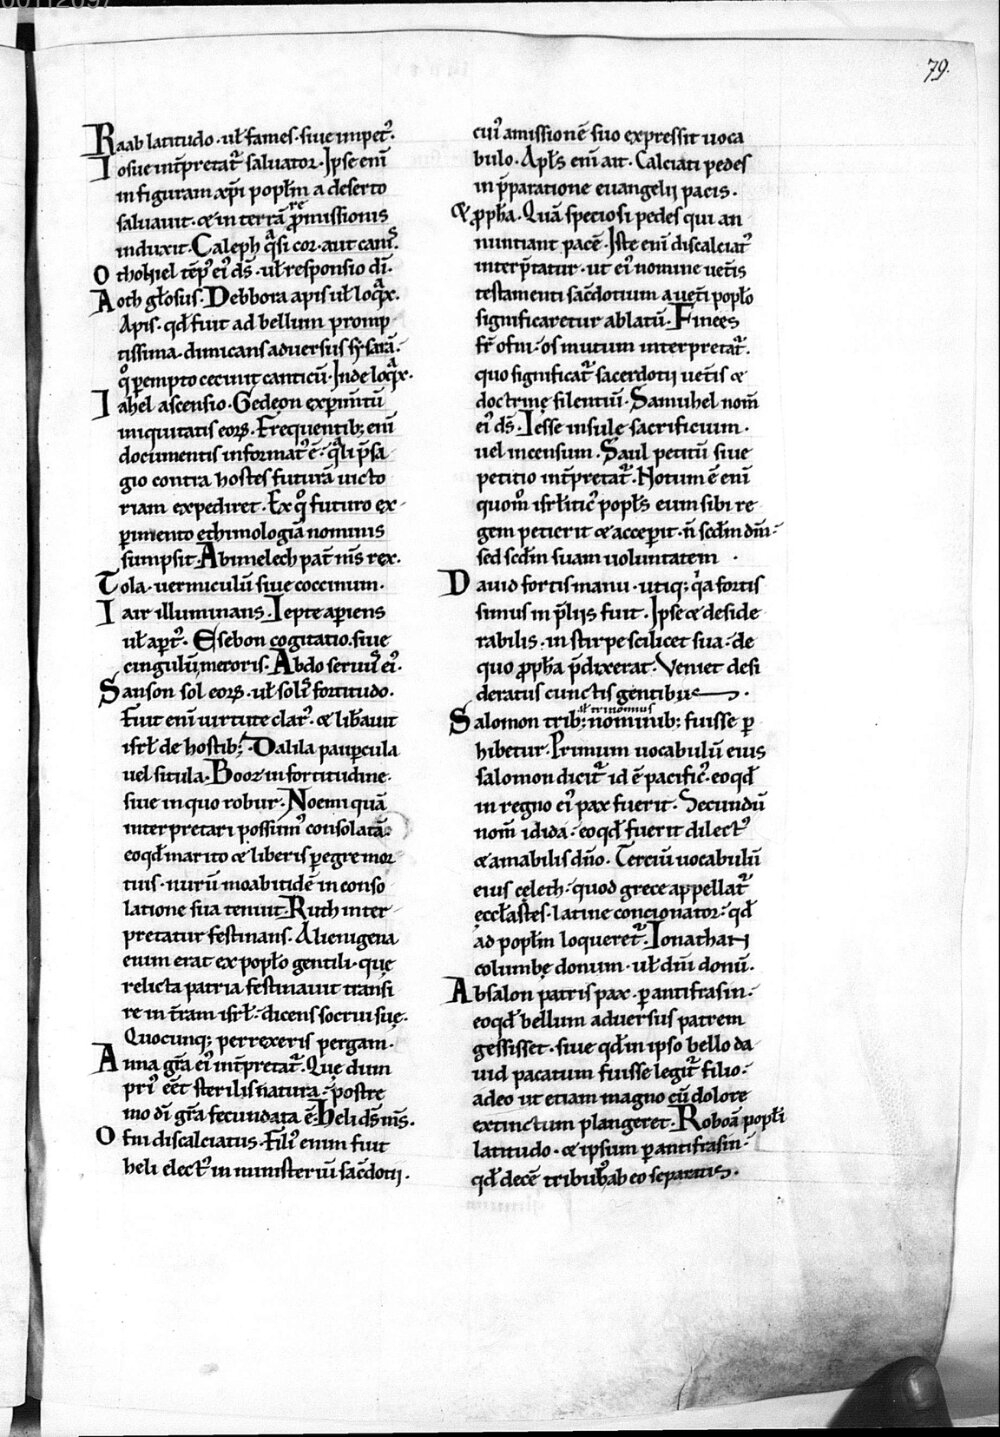 79.
Raab latitudo · ul̄ fames · siue impet᷒.
Iosue int̄pretat᷑ saluator · Ipse eni᷒
in figuram xp̄i popl̄m a deserto
saluauit · & in terrā re p̄missionis
induxit · Caleph qͣsi cor · aut canis.
Othohiel tēp᷒ ei᷒ ds̄ · ul̄ responsio dī.
Aoth gl̄osus · Debbora apis ul̄ loqͣx.
Apis · qđ fuit ad bellum promp
tissima · dimicans aduersus sysarā ·
qͦ ꝑempto cecinit canticū · Inde loqͣx.
Iahel ascensio · Gedeon exꝑim̄tū
iniquitatis eoꝝ · Frequentib; enī
documentis informat᷒ ē · qͣli p̄sa
gio contra hostes futurā uicto
riam expediret · Ex qͦ futuro ex
ꝑimento ethimologiā nominis
sumpsit · Abimelech pat̄ ms̄ rex.
Tola · uermiculū siue coccinum ·
Iair illuminans · Iepte aperiens
ul̄ apt᷒ · Esebon cogitatio · siue
cingulū meroris · Abdo seruus ei᷒.
Sanson sol eoꝝ · ul̄ solis fortitudo ·
Fuit enī uirtute clar᷒ · & lib̄auit
isrl̄ de hostib; · Dalila pauꝑcula
uel situla · Booz in fortitudine ·
siue in quo robur · Noemi quā
interpretari possim᷒ consolatā ·
eoqđ marito & liberis ꝑegre mor
tuis · nurū moabitidē in conso
latione sua tenuit · Ruth inter
pretatur festinans · Alienigena
enim erat ex popl̄o gentili · quę
relicta patria festinauit transi
re in t̄ram isrl̄ · dicens socrui suę ·
Quocunq; perrexeris pergam ·
Anna gr̄a ei᷒ int̄pretat᷑ · Quę dum
pri᷒ eēt sterilis natura · postre
mo dī gr̄a fecundata ē · Heli ds̄ ms̄.
Ofni discalciatus · Fili᷒ enim fuit
heli elect᷒ in ministeriū sac̄dotii ·
cui᷒ amissionē suo expressit uoca
bulo · Apl̄s enī ait · Calciati pedes
in p̄paratione euangelij pacis ·
& ꝓph̄a · Quā speciosi pedes qui an
nuntiant pacē · Iste enī discalciat᷒
interp̄tatur · ut ei᷒ nomine uet̄is
testamenti sac̄dotium a uet̄i popl̄o
significaretur ablatū · Finees
fr̄ ofni · os mutum interpretat᷑ ·
quo significat᷑ sacerdotij uet̄is &
doctrinę silentiū · Samuhel nom̄
ei᷒ ds̄ · Iesse insule sacrificium ·
uel incensum · Saul petitū siue
petitio int̄pretat᷑ · Notum ē enī
quom̊ isrl̄itic᷒ popl̄s eum sibi re
gem petierit & acceperit · n̄ scđm dm̄ ·
sed scđm suam uoluntatem ·
Dauid fortis manu · utiq; qͥa fortis
simus in p̄lijs fuit · Ipse & deside
rabilis · in stirpe scilicet sua · de
quo ꝓph̄a p̄dixerat · Veniet desi
deratus cunctis gentibus ·
ul̄ trinomius
Salomon trib; nominib; fuisse ꝑ
hibetur · Primum uocabulū eius
salomon dicit᷑ id ē pacific᷒ · eoqđ
in regno ei᷒ pax fuerit · Secundū
nom̄ idida · eoqđ fuerit dilect᷒
& amabilis dn̄o · Terciū uocabulū
eius cęlech · quod grece appellat᷑
eccl̄astes · latine concionator · qđ
ad popl̄m loqueret᷑ · Ionathan
columbę donum · ul̄ dn̄i donū ·
Absalon patris pax · ꝑ antifrasin ·
eoqđ bellum aduersus patrem
gessisset · siue qđ in ipso bello da
uid pacatum fuisse legit᷑ filio ·
adeo ut etiam magno cū dolore
extinctum plangeret · Roboā popl̄i
latitudo · & ipsum ꝑ antifrasin ·
qđ decē tribub᷒ ab eo separatis ·